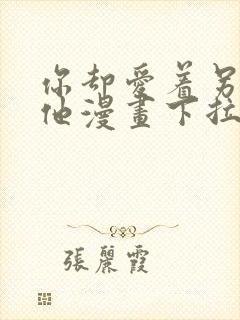 你却愛着另
他漫畫下拉
張麗霞